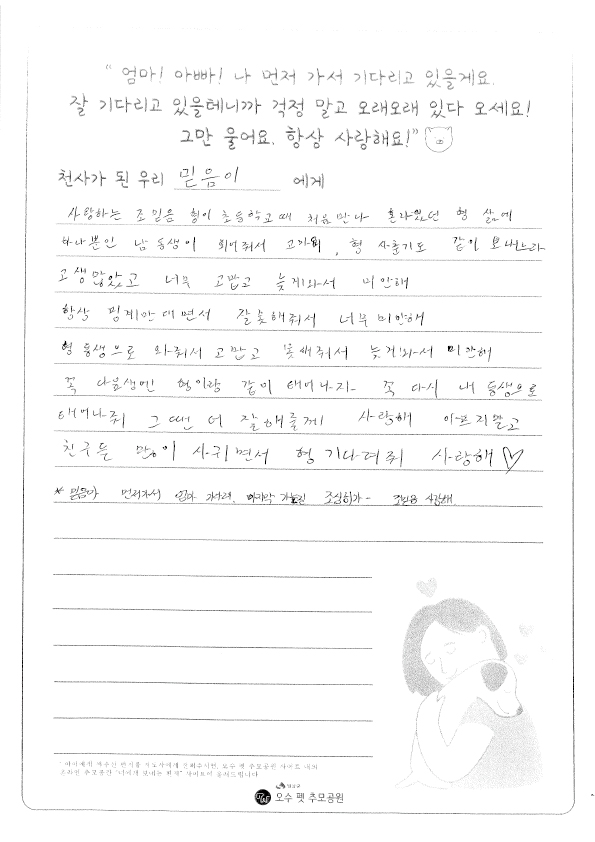 “ 엄마! 아빠! 나 먼저 가서 기다리고 있을게요.
잘 기다리고 있을테니까 걱정 말고 오래오래 있다 오세요!
그만 울어요. 항상 사랑해요!”
천사가 된 우리 믿음이 에게
사랑하는 조믿음 형이 초등학교때 처음만나 혼자있던 형 삶에
하나뿐인 남동생이 되어줘서 고마워, 형 사춘기도 같이 보내느라
고생많았고 너무 고맙고 늦게와서 미안해
항상 핑계만대면서 잘못해줘서 너무미안해
형 동생으로 와줘서 고맙고 못해줘서 늦게와서 미안해
꼭 다음생엔 형이랑 같이 태어나자- 꼭 다시 내 동생으로
태어나줘 그땐 더 잘해줄께 사랑해 아프지말고
친구들 많이 사귀면서 형 기다려줘 사랑해♡
* 믿음아 먼저가서 엄마 마지막 조심히가- 조믿음 사랑해.
온라인 추모공간
오수 펫 추모공원